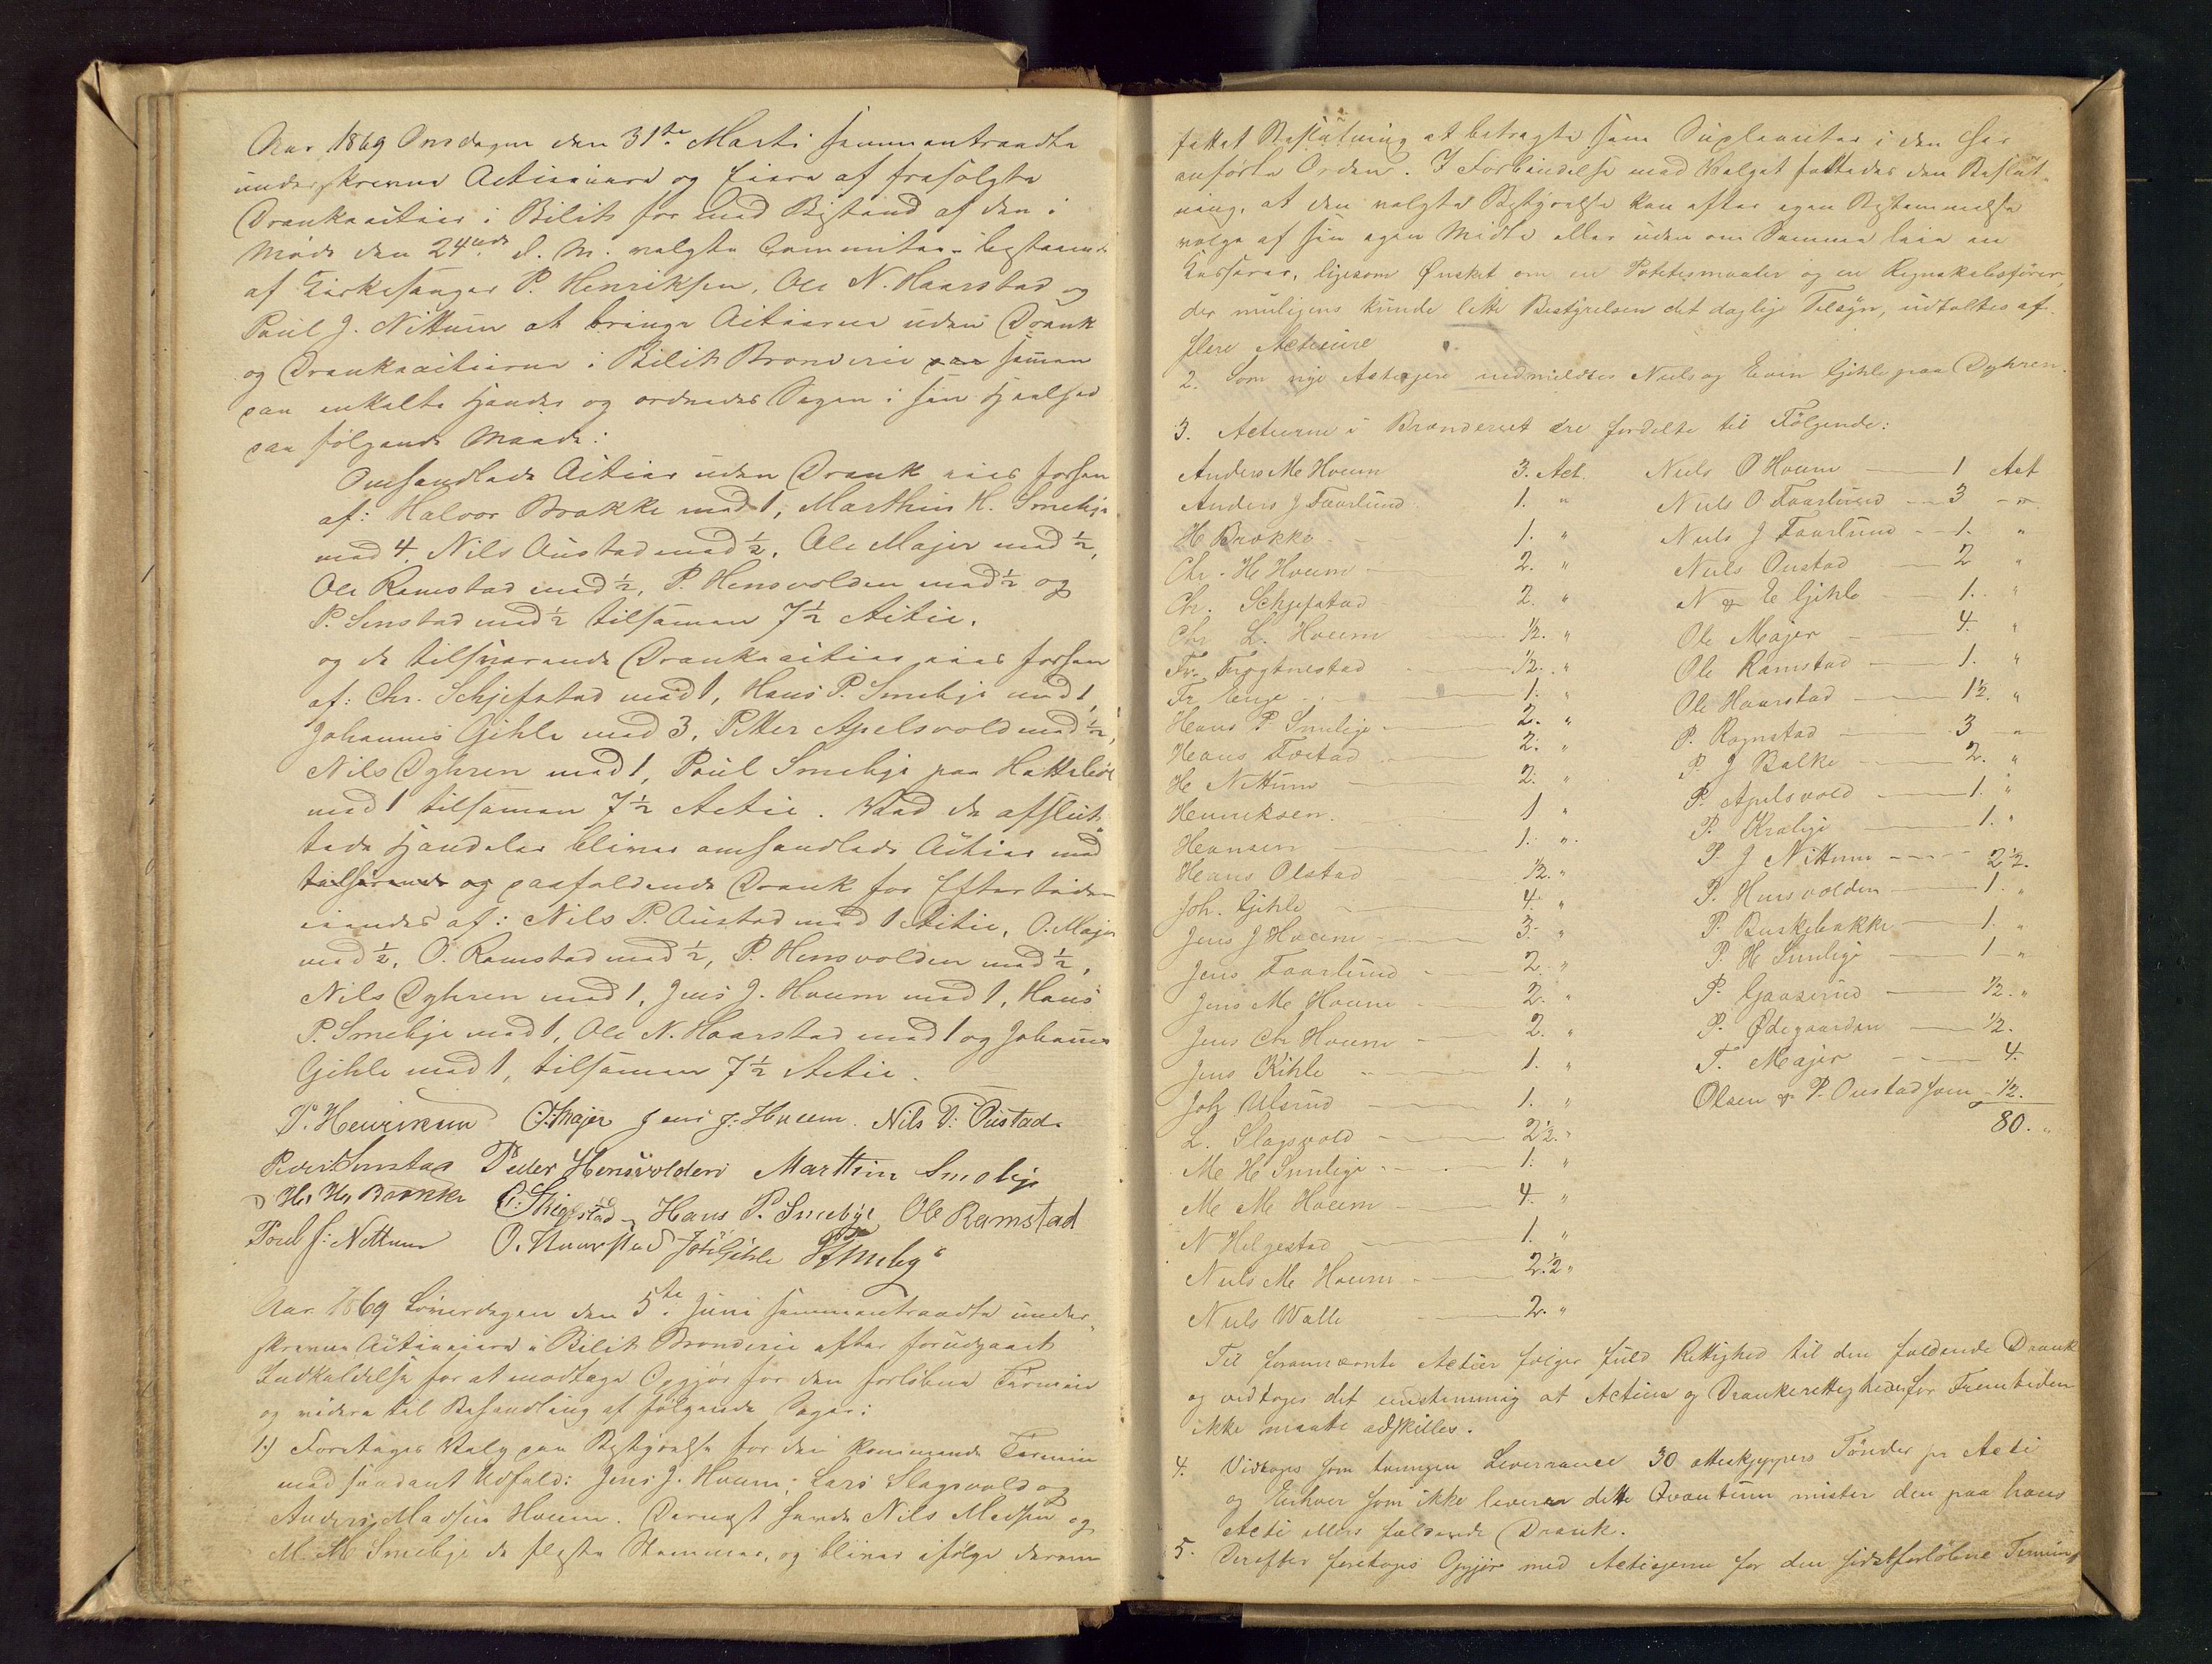 Aar 1869 Onsdagen den 31te Marti sammentraadte
underskrevne Actieeiere og Eiere af frasolgte
Drankeactier i Bilit for med Bistand af den i
Møde den 24nde d. M. valgte Committee bestaaende
af Kirkesanger P. Henriksen, Ole N. Haarstad og
Paul J. Nettum at bringe Actierne uden Drank
og Drankeactierne i Bilit Brænderie paa samen
paa enkelte Hænder og ordnedes Sagen i sin Heelhed
paa følgende Maade:
Omhandlede Actier uden Drank eies forhen
af: Halvor Brække med 1, Marthin H. Smebye
med 4, Nils Austad med ½, Ole Majer med ½,
Ole Ramstad med ½, P. Hensvolden med ½ og
P. Senstad med ½ tilsamen 7½ Actie.
og de tilsvarende Drankeactier eies forhen
af: Chr. Schjefstad med 1, Hans P. Smebye med 1,
Johannes Gihle med 3, Petter Apelsvold med ½,
Nils Dyhren med 1, Paul Smebye paa
med 1 tilsamen 7½ Actie. Ved de afslut-
tede Handeler bliver omhandlede Actier med
tilhørende og paafaldende Drank for Eftertiden
eiendes af: Nils P. Austad med 1 Actie, O. Majer
med ½, O. Ramstad med ½, P. Hensvolden med ½,
Nils Dyhren med 1, Jens J. Hveem med 1, Hans
P. Smebye med 1, Ole N. Haarstad med 1 og Johannes
Gihle med 1, tilsamen 7½ Actie.
P. Henriksen O. Majer Jens J: Hveem. Nils P: Oustad.
Peder Senstad Peder Hensvolden Marthin Smebye
H. H. Brække C. Skiefstad Hans P. Smebye Ole Ramstad
Poul J: Nettum O. Haarstad Joh. Gihle P Smeby
Aar 1869 Løverdagen den 5te Juni sammentraadte under-
skrevne Actieeiere i Bilit Brænderie efter forudgaaet
Indkaldelse for at modtage Opgjør for den forløbne Termin
og videre til Behandling af følgende Sager:
1.) Foretages Valg paa Bestyrelse for den kommende Termin
med saadant Udfald: Jens J. Hveem, Lars Slagsvold og
Anders Madsen Hveem. Dernæst havde Nils Madsen og
M. H. Smebye de fleste Stemmer, og bliver ifølge derom
fattet Beslutning at betragte som Suplianter i den her
anførte Orden. I Forbindelse med Valget fattedes den Beslut-
ning, at den valgte Bestyrelse kan efter egen Bestemmelse
vælge af sin egen Midte eller uden om Samme leie en
Kasserer, ligesom Ønsket om en Potetesmaaler og en Regnskabsfører,
der muligens kunde lette Bestyrelsen det daglige Tilsyn, udtaltes af
flere Actieeiere
2. Som nye Actiejere indmeldtes Niels og Even Gihle paa Dyhren.
3. Actierne i Brænderiet ere fordelte til Følgende:
Anders M Hveem 3. Act. Niels O Hveem 1 Act
Anders J Faarlund 1. " Niels O Faarlund 3 "
H Brække 1. " Niels J Faarlund 1. "
Chr. H Hveem 2. " Niels Oustad 2 "
Chr. Schjefstad 2. " N & E Gihle 1. "
Chr L. Hveem ½. " Ole Majer 4. "
Fr. Frøgtnestad ½. " Ole Ramstad 1. "
Fr Enge 1. " Ole Haarstad 1½. "
Hans P Smebye 2. " P. Rognstad 3 "
Hans Fostad 2. " P. J Balke 2. "
H Nettum 2. " P. Apelsvold 1. "
Henriksen 1 " P. Kræbye 1. "
Hansen 1. " P. J Nettum 2½.
Hans Olstad ½. " P. Hensvolden 1. "
Joh. Gihle 4. " P. Buskebakke 1. "
Jens J Hveem 3. " P. H Smebye 1 "
Jens Faarlund 2. " P. Gaaserud ½. "
Jens M Hveem 2. " P. Ødegaarden ½.
Jens Chr Hveem 2. " T. Majer 4.
Jens Kihle 1. " Olsen & P. Oustad sam ½.
Joh Ulsrud 1. " 80. "
L. Slagsvold 2½. "
M H Smebye 1. "
M M Hveem 4. "
N Helgestad 1. "
Niels M Hveem 2.½ "
Niels Valle 2. "
Til forannævnte Actier følger fuld Rettighed til den faldende Drank
og vedtoges det enstemmig at Actierne og Drankerettigheder for Fremtiden
ikke maatte adskilles.
4. Vedtoges som tvungen Leverance 30 otteskjeppers Tønder pr Acti
og Enhver som ikke leverer dette Qvantum mister den paa hans
Acti ellers faldende Drank.
5. Derefter foretoges Opgjør med Actiejerne for den sidstforløbne Termin